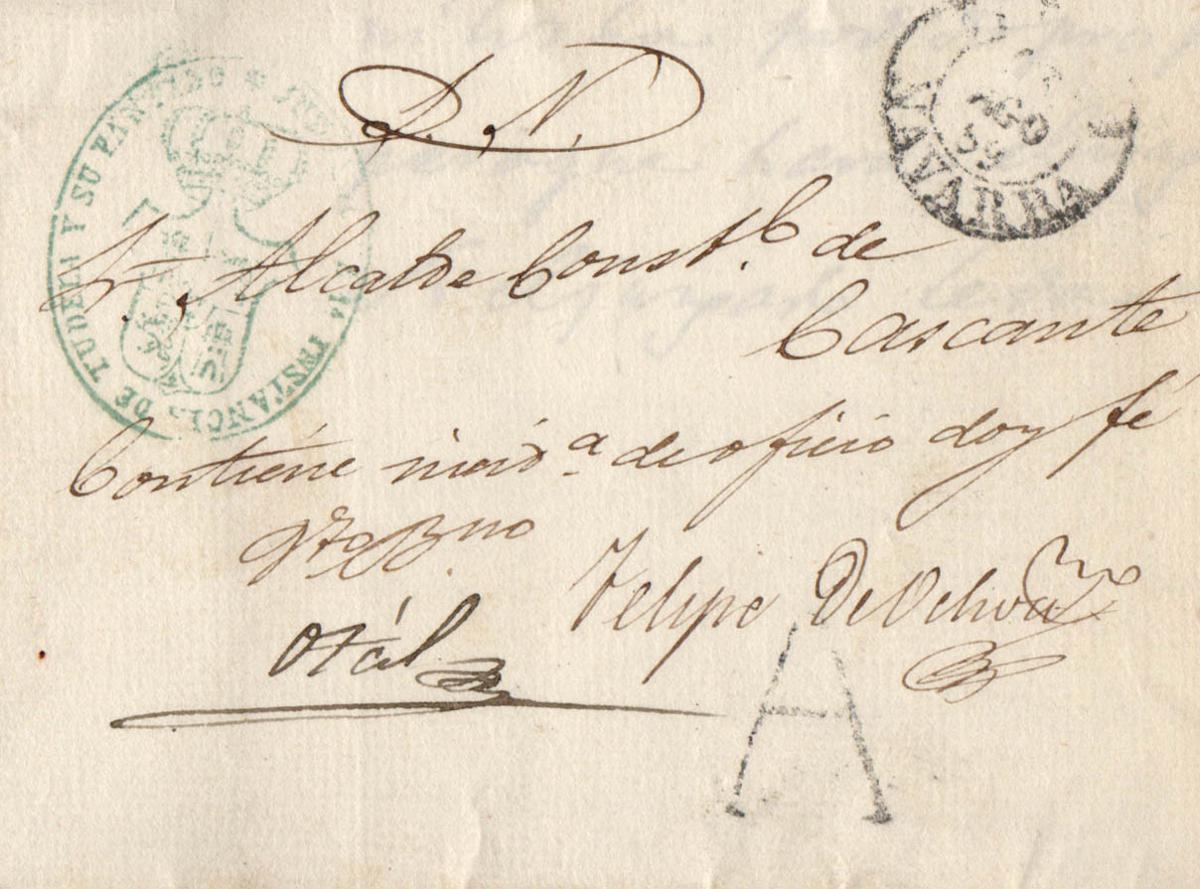 S. N.
Sr. Alcalde Const.l de
Cascante
Contiene incid.a de oficio doy fé
Vto Bno
Otál
Felipe De Ochoa
A
INSTANCIA DE TUDELA Y SU PARTIDO
AGO
59
NAVARRA